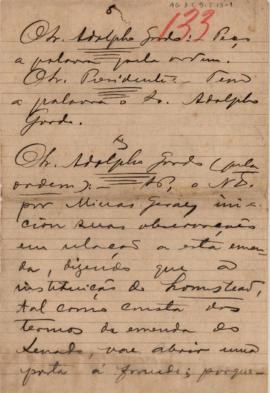 5
AG 3.5.9.5.13-1
133
O Sr. Adolpho Gordo: Peço
a palavra pela ordem.
O Sr. Presidente: Tem
a palavra o Sr. Adolpho
Gordo.
O Sr. Adolpho Gordo (pela
ordem): — o
por Minas Geraes ini-
ciou suas observações
em relação a esta emen-
da, dizendo que a
instituição do homestead,
tal como consta dos
termos da emenda do
Senado, vae abrir uma
porta á fraude; porque-